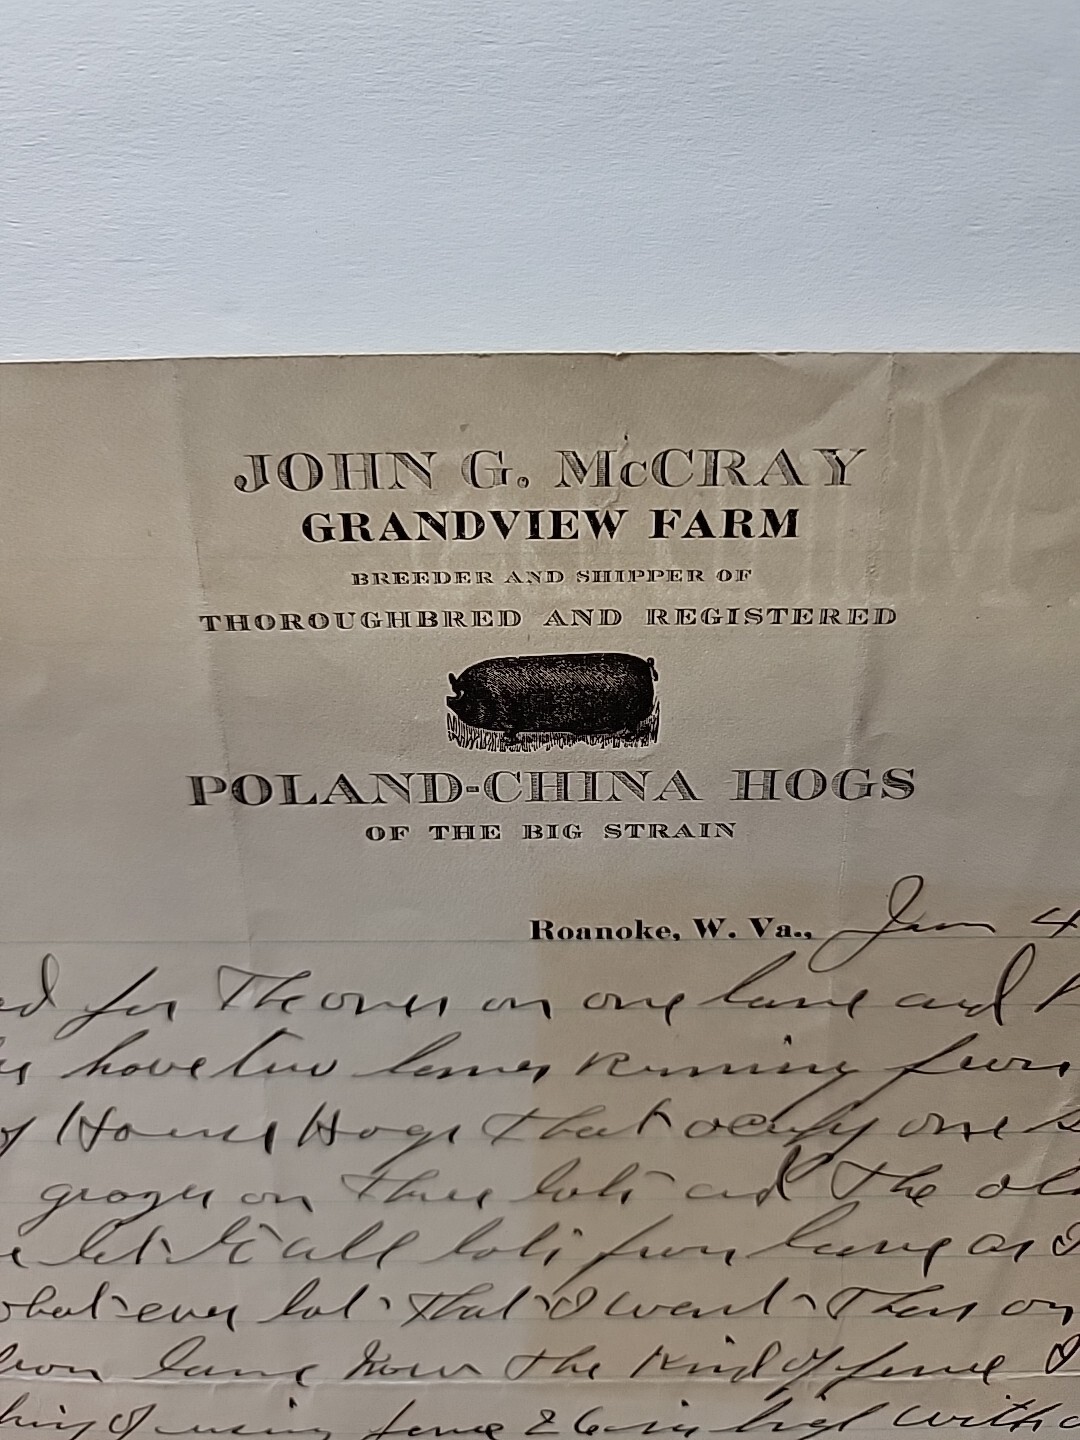 JOHN G. McCRAY
GRANDVIEW FARM
BREEDER AND SHIPPER OF
THOROUGHBRED AND REGISTERED
POLAND-CHINA HOGS
OF THE BIG STRAIN
Roanoke, W. Va., Jan 4
for The ones on one lane and
have two lanes running from
of House Hogs that ocupy one
on three lots and The old
let all lots from lane as I
what ever lot that I want Then on
lane Now the Kind of fence I
of using fence 26 in high with